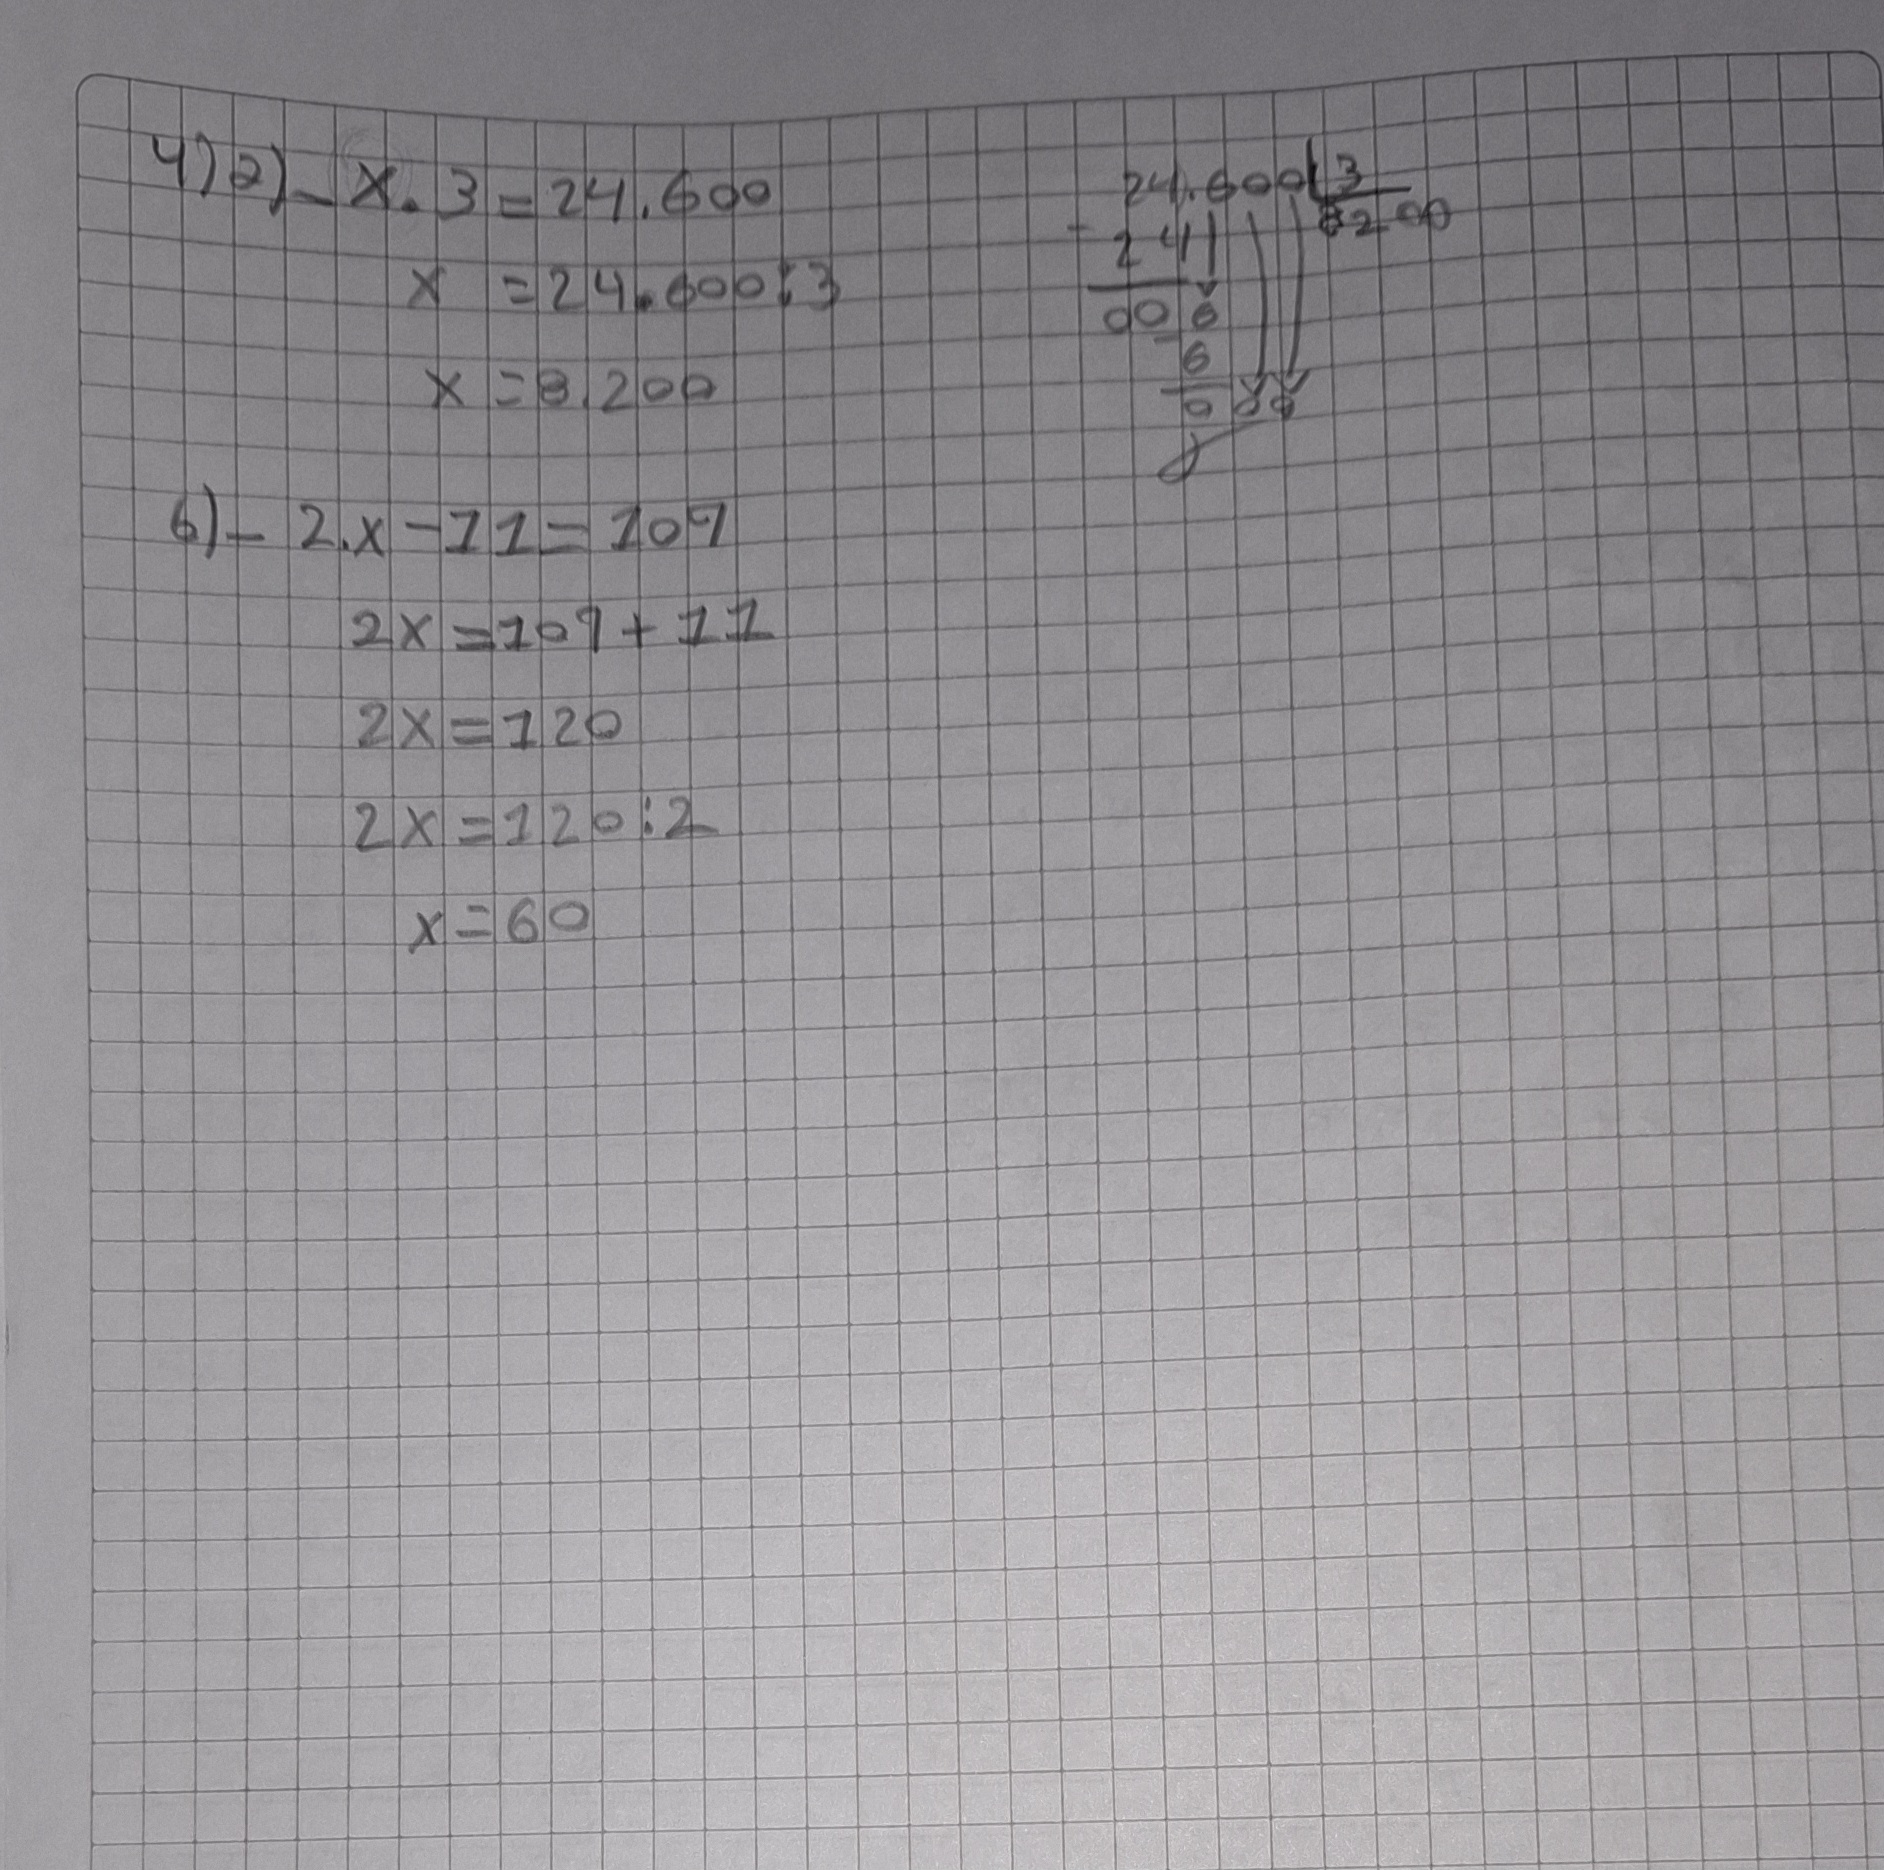 4)a)- x.3=24.600
x =24.600:3
x =8.200
24.600 3
- 241 8200
006
- 6
0 00
b)- 2.x-11=109
2x=109+11
2x=120
2x=120:2
x=60